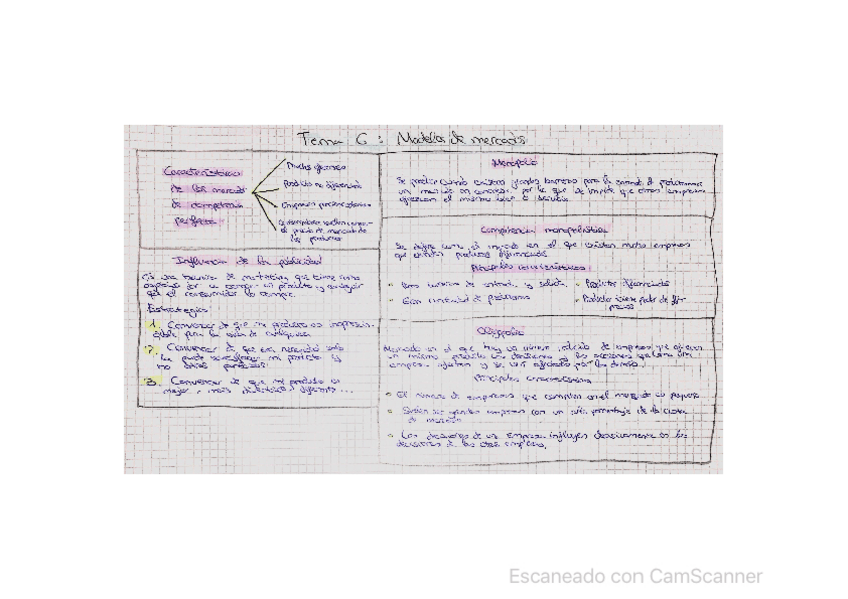 Tema 6: Modelos de mercado
Características
de los mercados
de competencia
perfecta
Muchos oferentes
Producto no diferenciado
Empresas precio-aceptantes
el precio de mercado de
los productos
Influencia de la publicidad
Es una técnica de marketing que tiene como
objetivo dar a conocer un producto y conseguir
que el consumidor lo compre.
Estrategias
1. Convencer de que mi producto es imprescin-
dible para la
2. Convencer de que esa necesidad solo
la puede satisfacer mi producto y
no otros
3. Convencer de que mi producto es
mejor, más diferente...
Monopolio
Se produce cuando existen grandes barreras para la
un mercado en concreto, por lo que se impide que otras empresas
ofrezcan el mismo bien o servicio.
Competencia monopolística
Se define como el mercado en el que existen muchas empresas
que venden productos diferenciados.
Principales características
• barreras de entrada y salida.
• Gran cantidad de productores
• Productos diferenciados
• Productor tiene poder de fijar
precios
Oligopolio
Mercado en el que hay un número reducido de empresas que ofrecen
un mismo producto las decisiones y las acciones que toma una
empresa afectan y se ven afectadas por las demás.
Principales características
• El número de empresas que compiten en el mercado es pequeño
• Suelen ser grandes empresas con un alto porcentaje de la cuota
de mercado
• Las decisiones de una empresa influyen decisivamente en las
decisiones de las otras empresas.
Escaneado con CamScanner